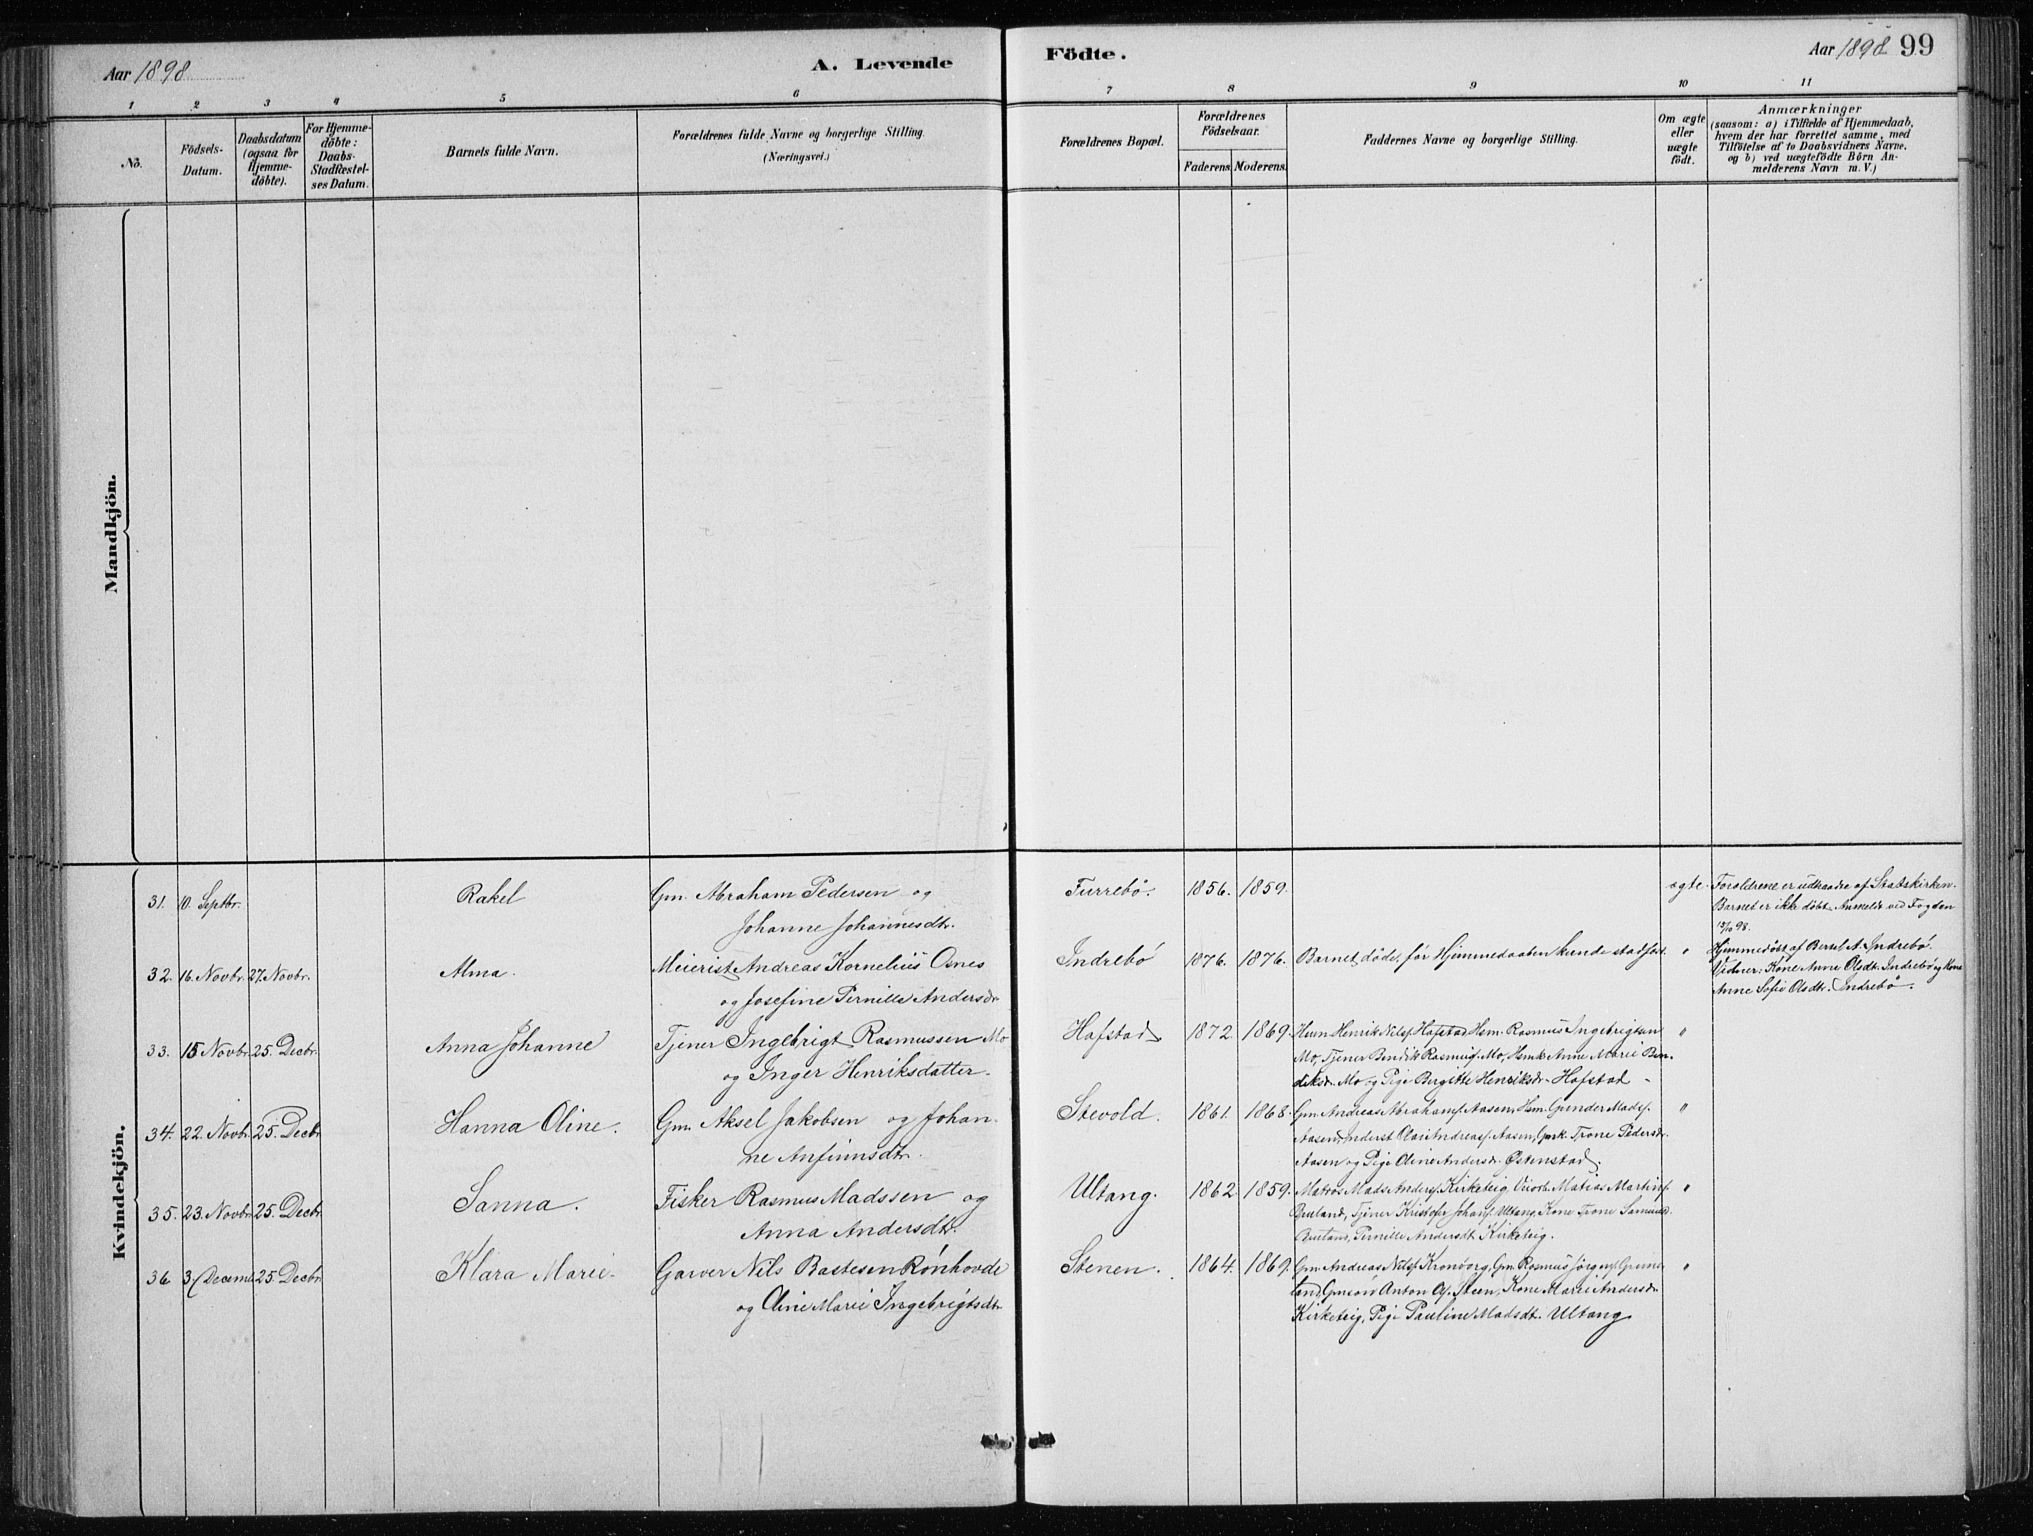 Aar 1898
A. Levende
Födte.
Aar 1898 99
1 2 3 4 5 6 7 8 9 10 11
No.
Födsels-
Datum.
Daabsdatum
(ogsaa for
Hjemme-
döbte).
For Hjemme-
döbte:
Daabs-
Stadfæstel-
ses Datum.
Barnets fulde Navn.
Forældrenes fulde Navne og borgerlige Stilling.
(Næringsvei.)
Forældrenes Bopæl.
Forældrenes
Födselsaar.
Faderens. Moderens.
Faddernes Navne og borgerlige Stilling.
Om ægte
eller
uægte
födt.
Anmærkninger
(saasom: a) i Tilfælde af Hjemmedaab,
hvem der har forrettet samme, med
Tilföielse af to Daabsvidners Navne,
og b) ved uægtefödte Börn An-
melderens Navn m. V.)
Mandkjön.
Kvindekjön.
31. 10. Septbr. Rakel Gm. Abraham Pedersen og
Johanne Johannesdtr.
Furrebø. 1856. 1859. ægte Foreldrene er udtraadte af Statskirken.
Barnet er ikke döbt. Anmeldt ved Fogden
12/10 98.
32. 16. Novbr. 27. Novbr. Alma. Meierist Andreas Kornelius Osnes
og Josefine Pernille Andersdr.
Indrebø 1876. 1876. Barnet döde, för Hjemmedaaben kunde stadfæst. " Hjemmedöbt af Bertel A. Indrebø.
Vidner: Kone Anne Olsdt. Indrebø og Kone
Anne Sofie Olsdtr. Indrebø.
33. 15 Novbr. 25. Decbr. Anna Johanne Tjener Ingebrigt Rasmussen Mo
og Inger Henriksdatter.
Hafstad 1872. 1869. Husm Henrik Nilsf. Hafstad, Hsm. Rasmus Ingebrigtsen "
Mo, Tjener Bendik Rasmusf. Mo, Hsmk. Anne Marie Ben-
diksdr. Mo og Pige Bergitte Henriksdr. Hafstad
34. 22. Novbr. 25. Decbr. Hanna Oline. Gm. Aksel Jakobsen og Johan-
ne Anfinnsdtr.
Stevold. 1861. 1868. Gm. Andreas Abrahamf. Aasen, Hsm. Gunder Madsf. "
Aasen, Inderst Olai Andreasf. Aasen, Gmk. Trone Pedersdr.
Aasen og Pige Oline Andersdr. Østenstad.
35. 23. Novbr. 25. Decbr. Sanna. Fisker Rasmus Madssen og
Anna Andersdtr.
Ultang. 1862. 1859. Matros Mads Andersf. Kirketeig, Matias Martinsf. "
Tjener Kristofer Johanf. Ultang, Kone Trone Samuelsd.
Pernille Andersdt. Kirketeig.
36. 3. Decembr. 25. Decbr. Klara Marie. Garver Nils Bastesen Rønhovde
og Oline Marie Ingebrigtsdtr.
Stenen. 1864. 1869. Gm. Andreas Nilsf. Kronborg, Gm. Rasmus Jörgenf. Grimme- "
land, Gmsön Anton Of. Steen, Kone Marie Andersdr.
Kirketeig, Pige Pauline Madsdt. Ultang